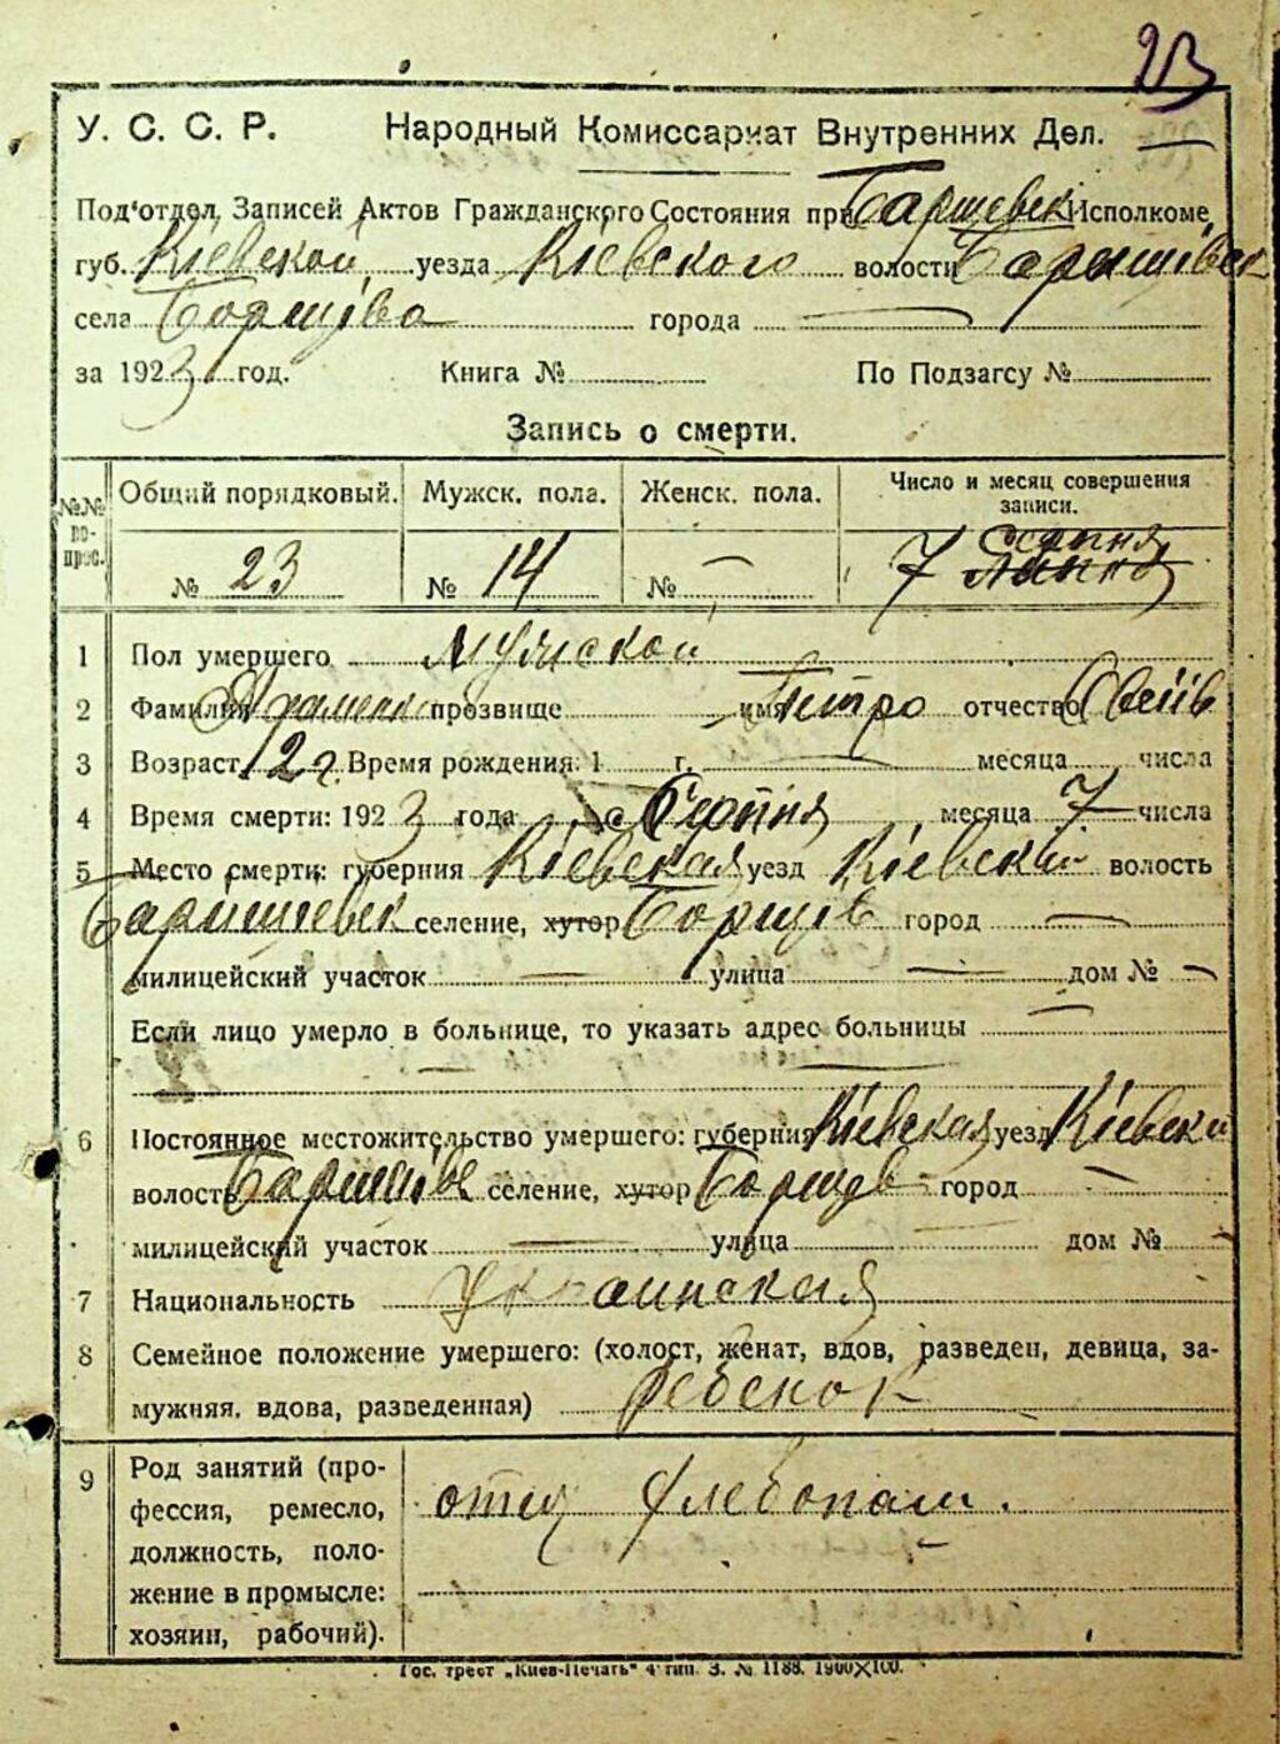 23
У. С. С. Р. Народный Комиссариат Внутренних Дел.
Под'отдел Записей Актов Гражданского Состояния при Баришевск Исполкоме,
губ. Кіевской уезда Кіевского волости Баришівск
села Борщіва города —
за 1923 год. Книга № По Подзагсу №
Запись о смерти.
№№ вопрос. Общий порядковый. Мужск. пола. Женск. пола. Число и месяц совершения записи.
№ 23 № 14 № — 7 Серпня
1 Пол умершего мужской
2 Фамилия прозвище имя Петро отчество
3 Возраст 12 г. Время рождения: 1 г. — месяца числа
4 Время смерти: 1923 года Серпня месяца 7 числа
5 Место смерти: губерния Кіевская уезд Кіевский волость
Баришевск селение, хутор Борщів город —
милицейский участок — улица — дом № —
Если лицо умерло в больнице, то указать адрес больницы —
6 Постоянное местожительство умершего: губерния Кіевская уезд Кіевски
волость Баришівс селение, хутор Борщів город —
милицейский участок — улица — дом № —
7 Национальность Украинская
8 Семейное положение умершего: (холост, женат, вдов, разведен, девица, за-
мужняя. вдова, разведенная) ребенок
9 Род занятий (про-
фессия, ремесло, отец хлебопаш.
должность, поло-
жение в промысле:
хозяин, рабочий).
Гос. трест „Киев-Печать" 4 тип. З. № 1188. 1900X100.